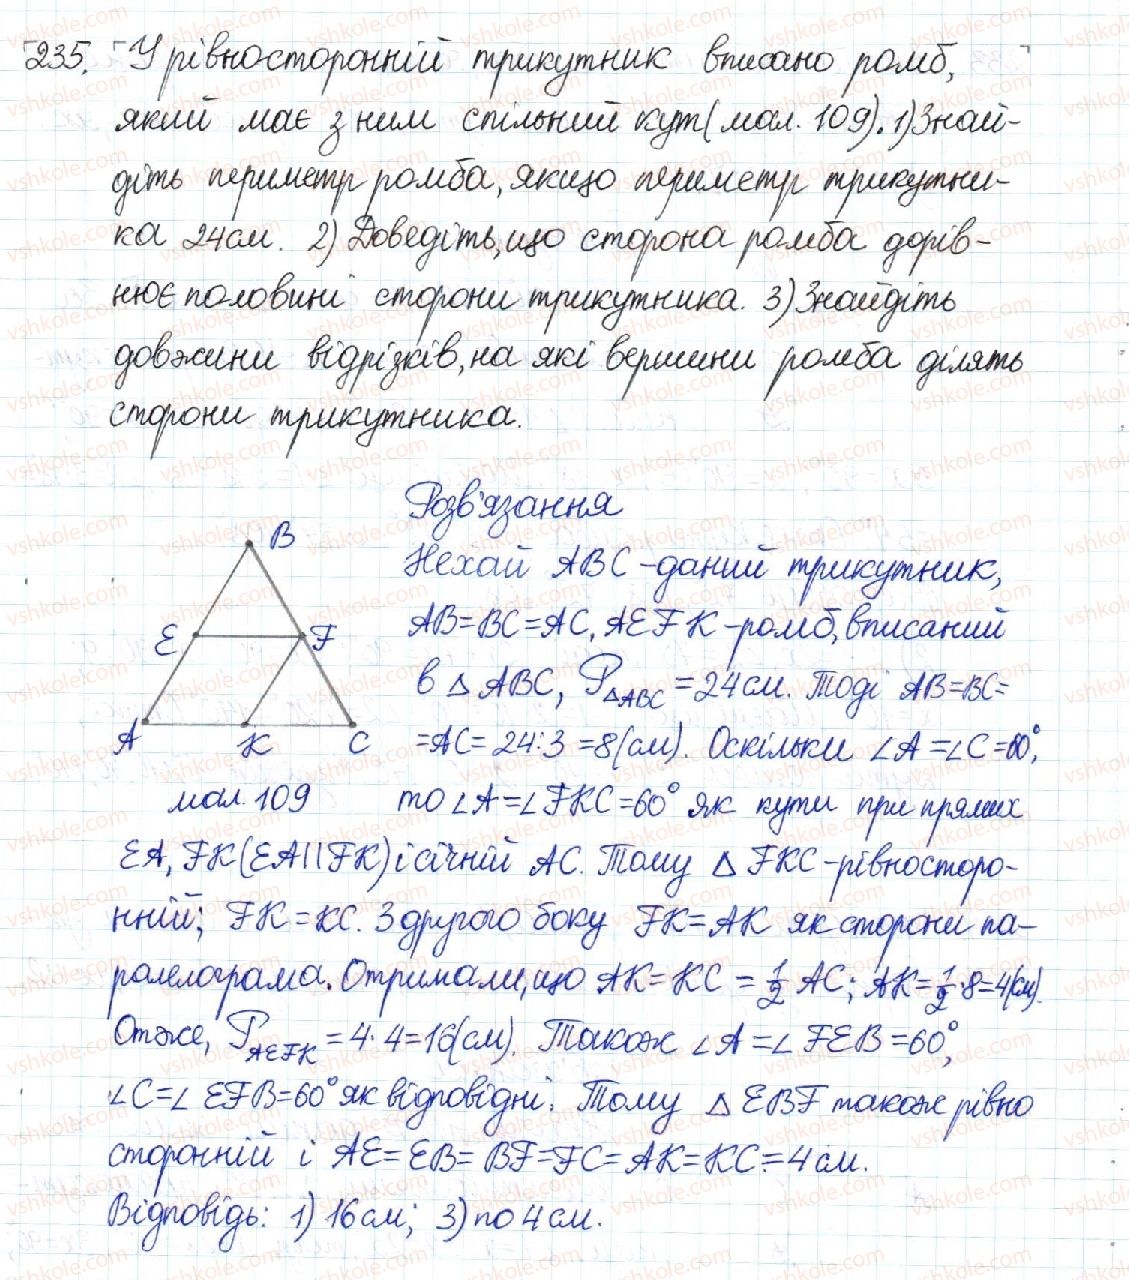 235. У рівносторонній трикутник вписано ромб,
який має з ним спільний кут (мал. 109). 1) Знай-
діть периметр ромба, якщо периметр трикутни-
ка 24 см. 2) Доведіть, що сторона ромба дорів-
нює половині сторони трикутника. 3) Знайдіть
довжини відрізків, на які вершини ромба ділять
сторони трикутника.
Розв'язання
B
E
F
A
K
C
мал. 109
Нехай ABC - даний трикутник,
AB=BC=AC, AEFK - ромб, вписаний
в △ABC, P△ABC = 24 см. Тоді AB=BC=
=AC= 24:3 =8(см). Оскільки ∠A =∠C =60°,
то ∠A =∠FKC =60° як кути при прямих
EA, FK (EA||FK) і січній AC. Тому △FKC - рівносторо-
нній; FK = KC. З другого боку FK = AK як сторони па-
ралелограма. Отримали, що AK = KC = 1/2 AC; AK= 1/2 · 8 = 4(см).
Отже, P AEFK = 4 · 4 = 16(см). Також ∠A = ∠FEB = 60°,
∠C = ∠EFB = 60° як відповідні. Тому △EBF також рівно
сторонній і AE = EB = BF = FC = AK = KC = 4 см.
Відповідь: 1) 16 см; 3) по 4 см.
vshkole.com